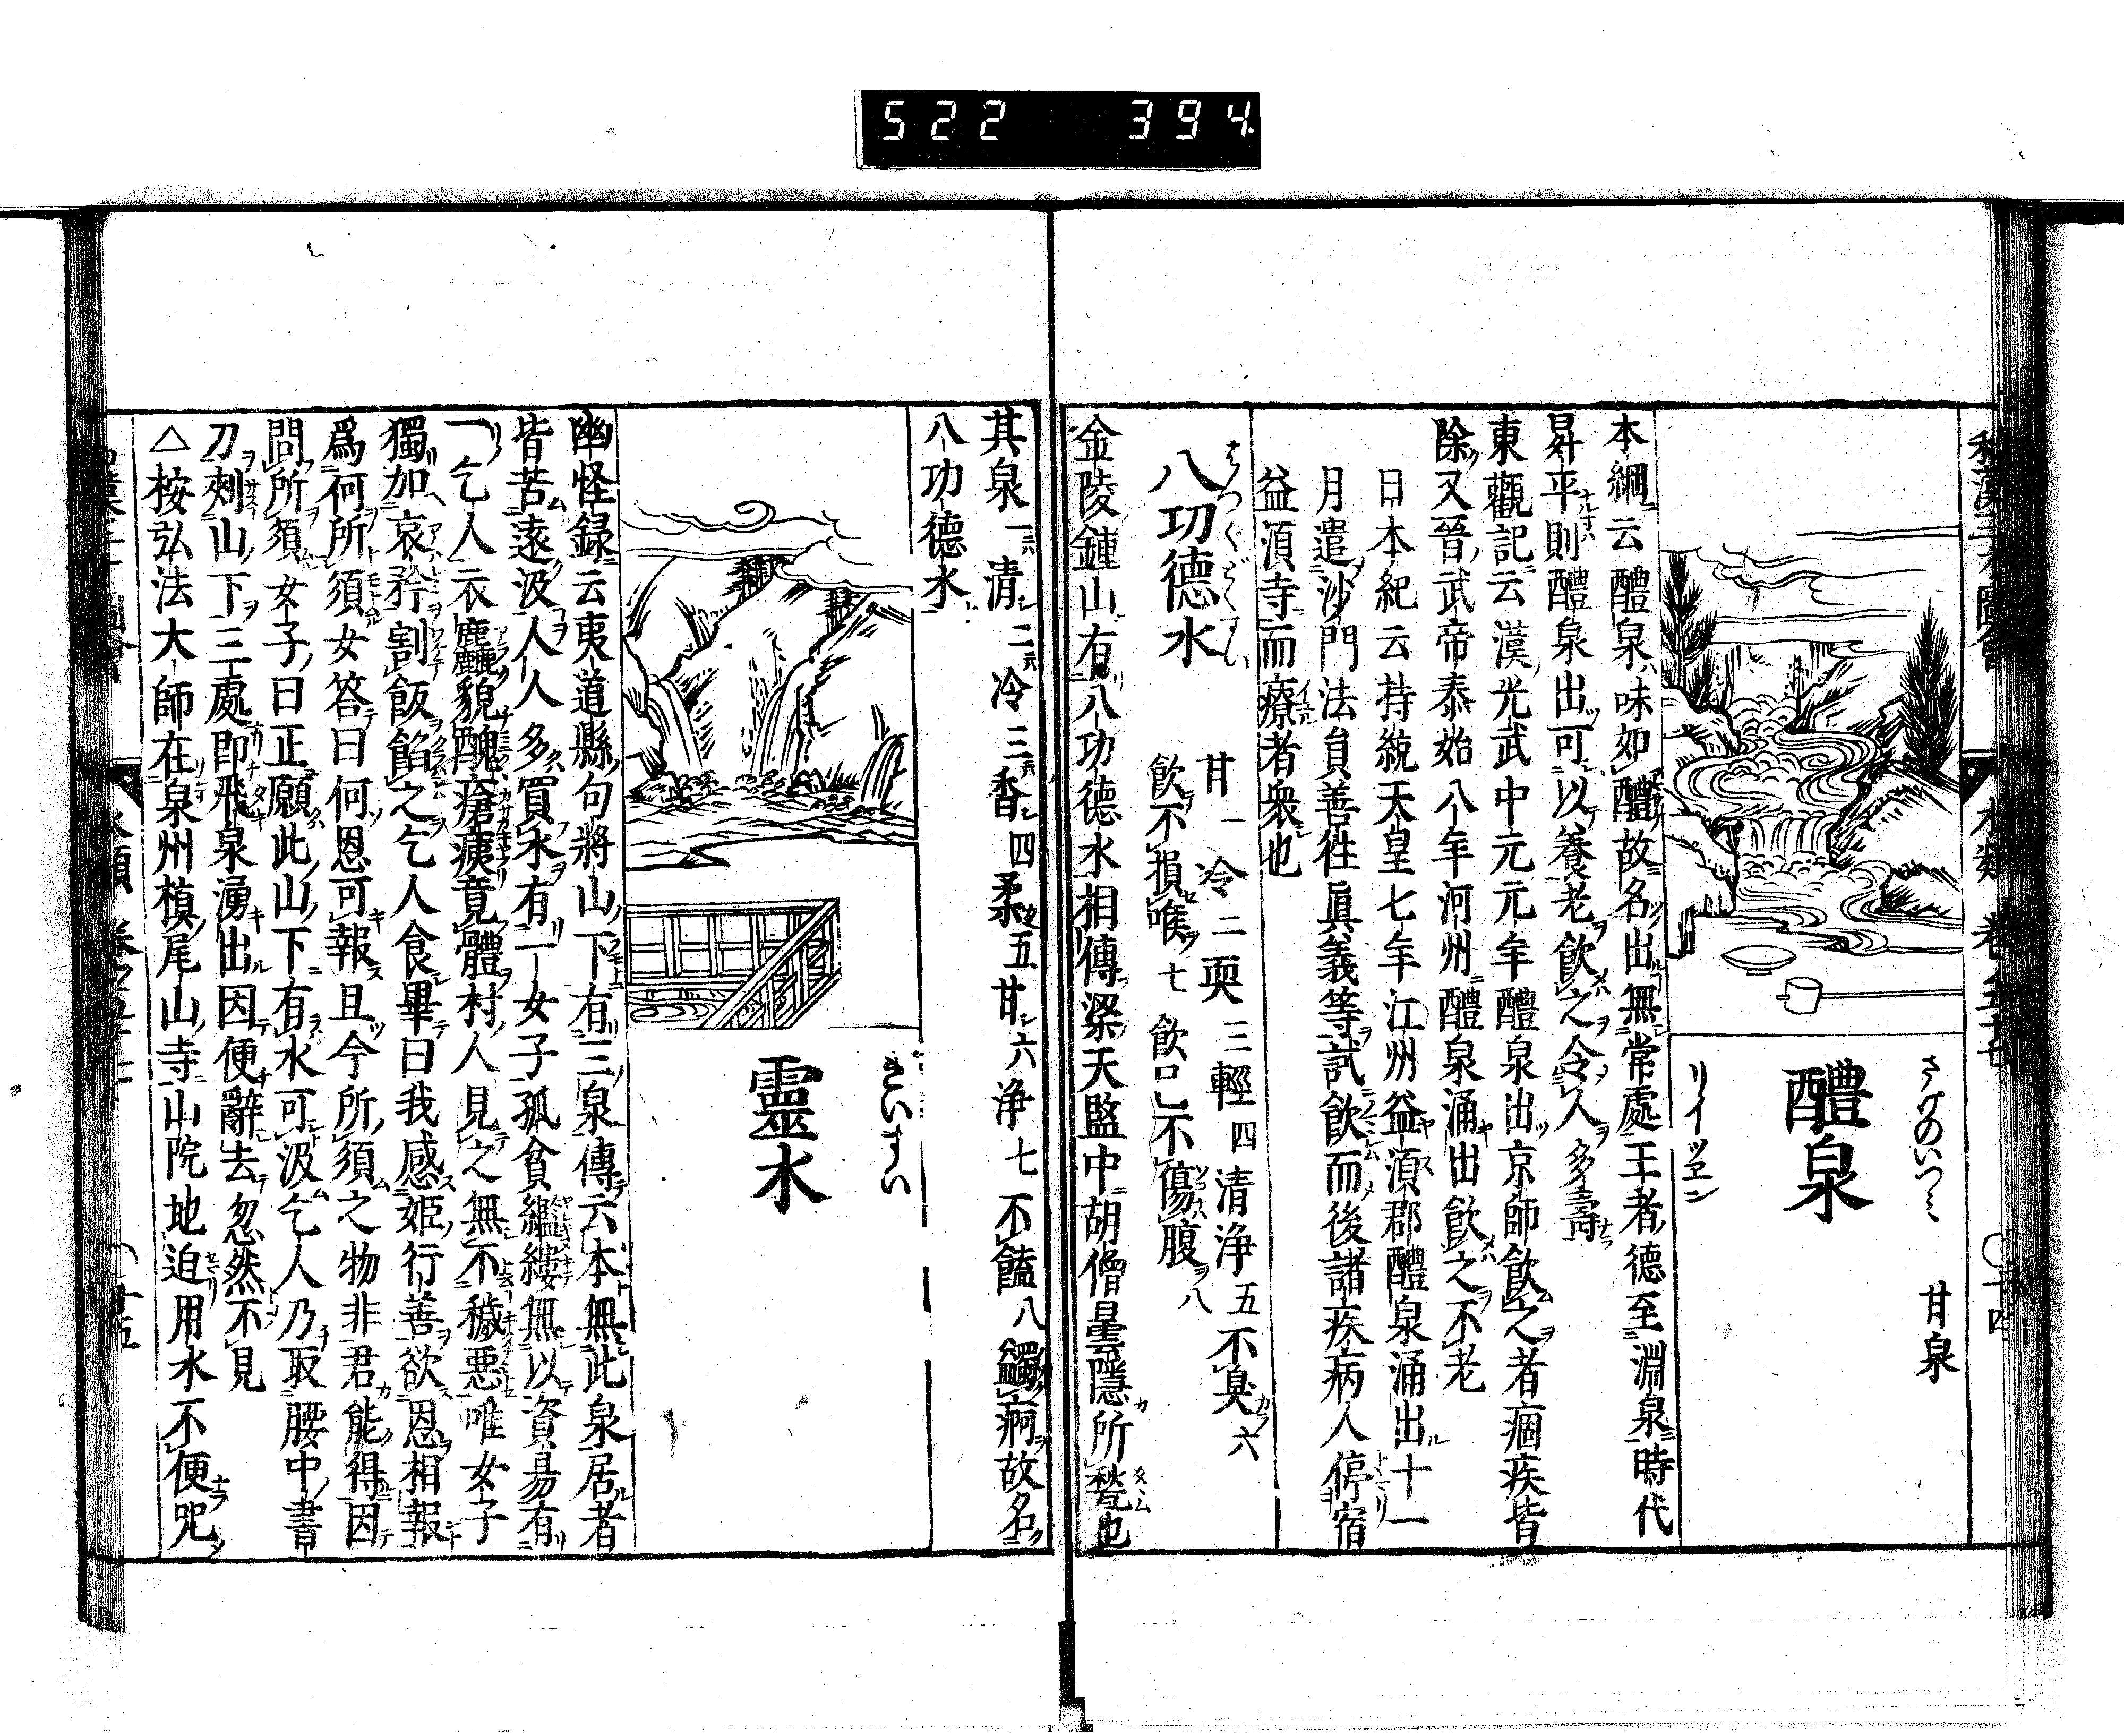 522 394
水類 卷ノ五十七
醴泉
さけのいつミ
甘泉
リイツヱン
本綱云醴泉味如醴故名出無常處王者德至淵泉時代
昇平則醴泉出可以養老飲之令人多壽
東觀記云漢光武中元元年醴泉出京師飲之者痼疾皆
除又晉武帝泰始八年河州醴泉涌出飲之不老
日本紀云持統天皇七年江州益湏郡醴泉涌出十一
月遣沙門法員善徃眞義等試飲而後諸疾病人停宿
益湏寺而療者衆也
はつくどくすい
八功德水
甘一 冷二 耎三 輕四 清浄五 不臭六
飲不損喉七 飲已不傷腹八
金陵鍾山有八功德水相傳梁天監中胡僧曇隱所甃也
其泉一清二冷三香四柔五甘六浄七不饐八蠲痾故名
八功德水
靈水
れいすい
幽怪録云夷道縣句將山下有三泉傳云本無此泉居者
皆苦遠汲人人多買水有一女子孤貧繿縷無以資易有
一乞人衣麤貌醜瘡痍竟體村人見之無不穢悪唯女子
獨加哀矜割飯餡之乞人食畢曰我感姫行善欲恩相報
爲何所須女答曰何恩可報且今所須之物非君能得因
問所須女子曰正願此山下有水可汲乞人乃取腰中書
刀刺山下三處即飛泉湧出因便辭去忽然不見
△桉弘法大師在泉州槙尾山寺山院地迫用水不便咒